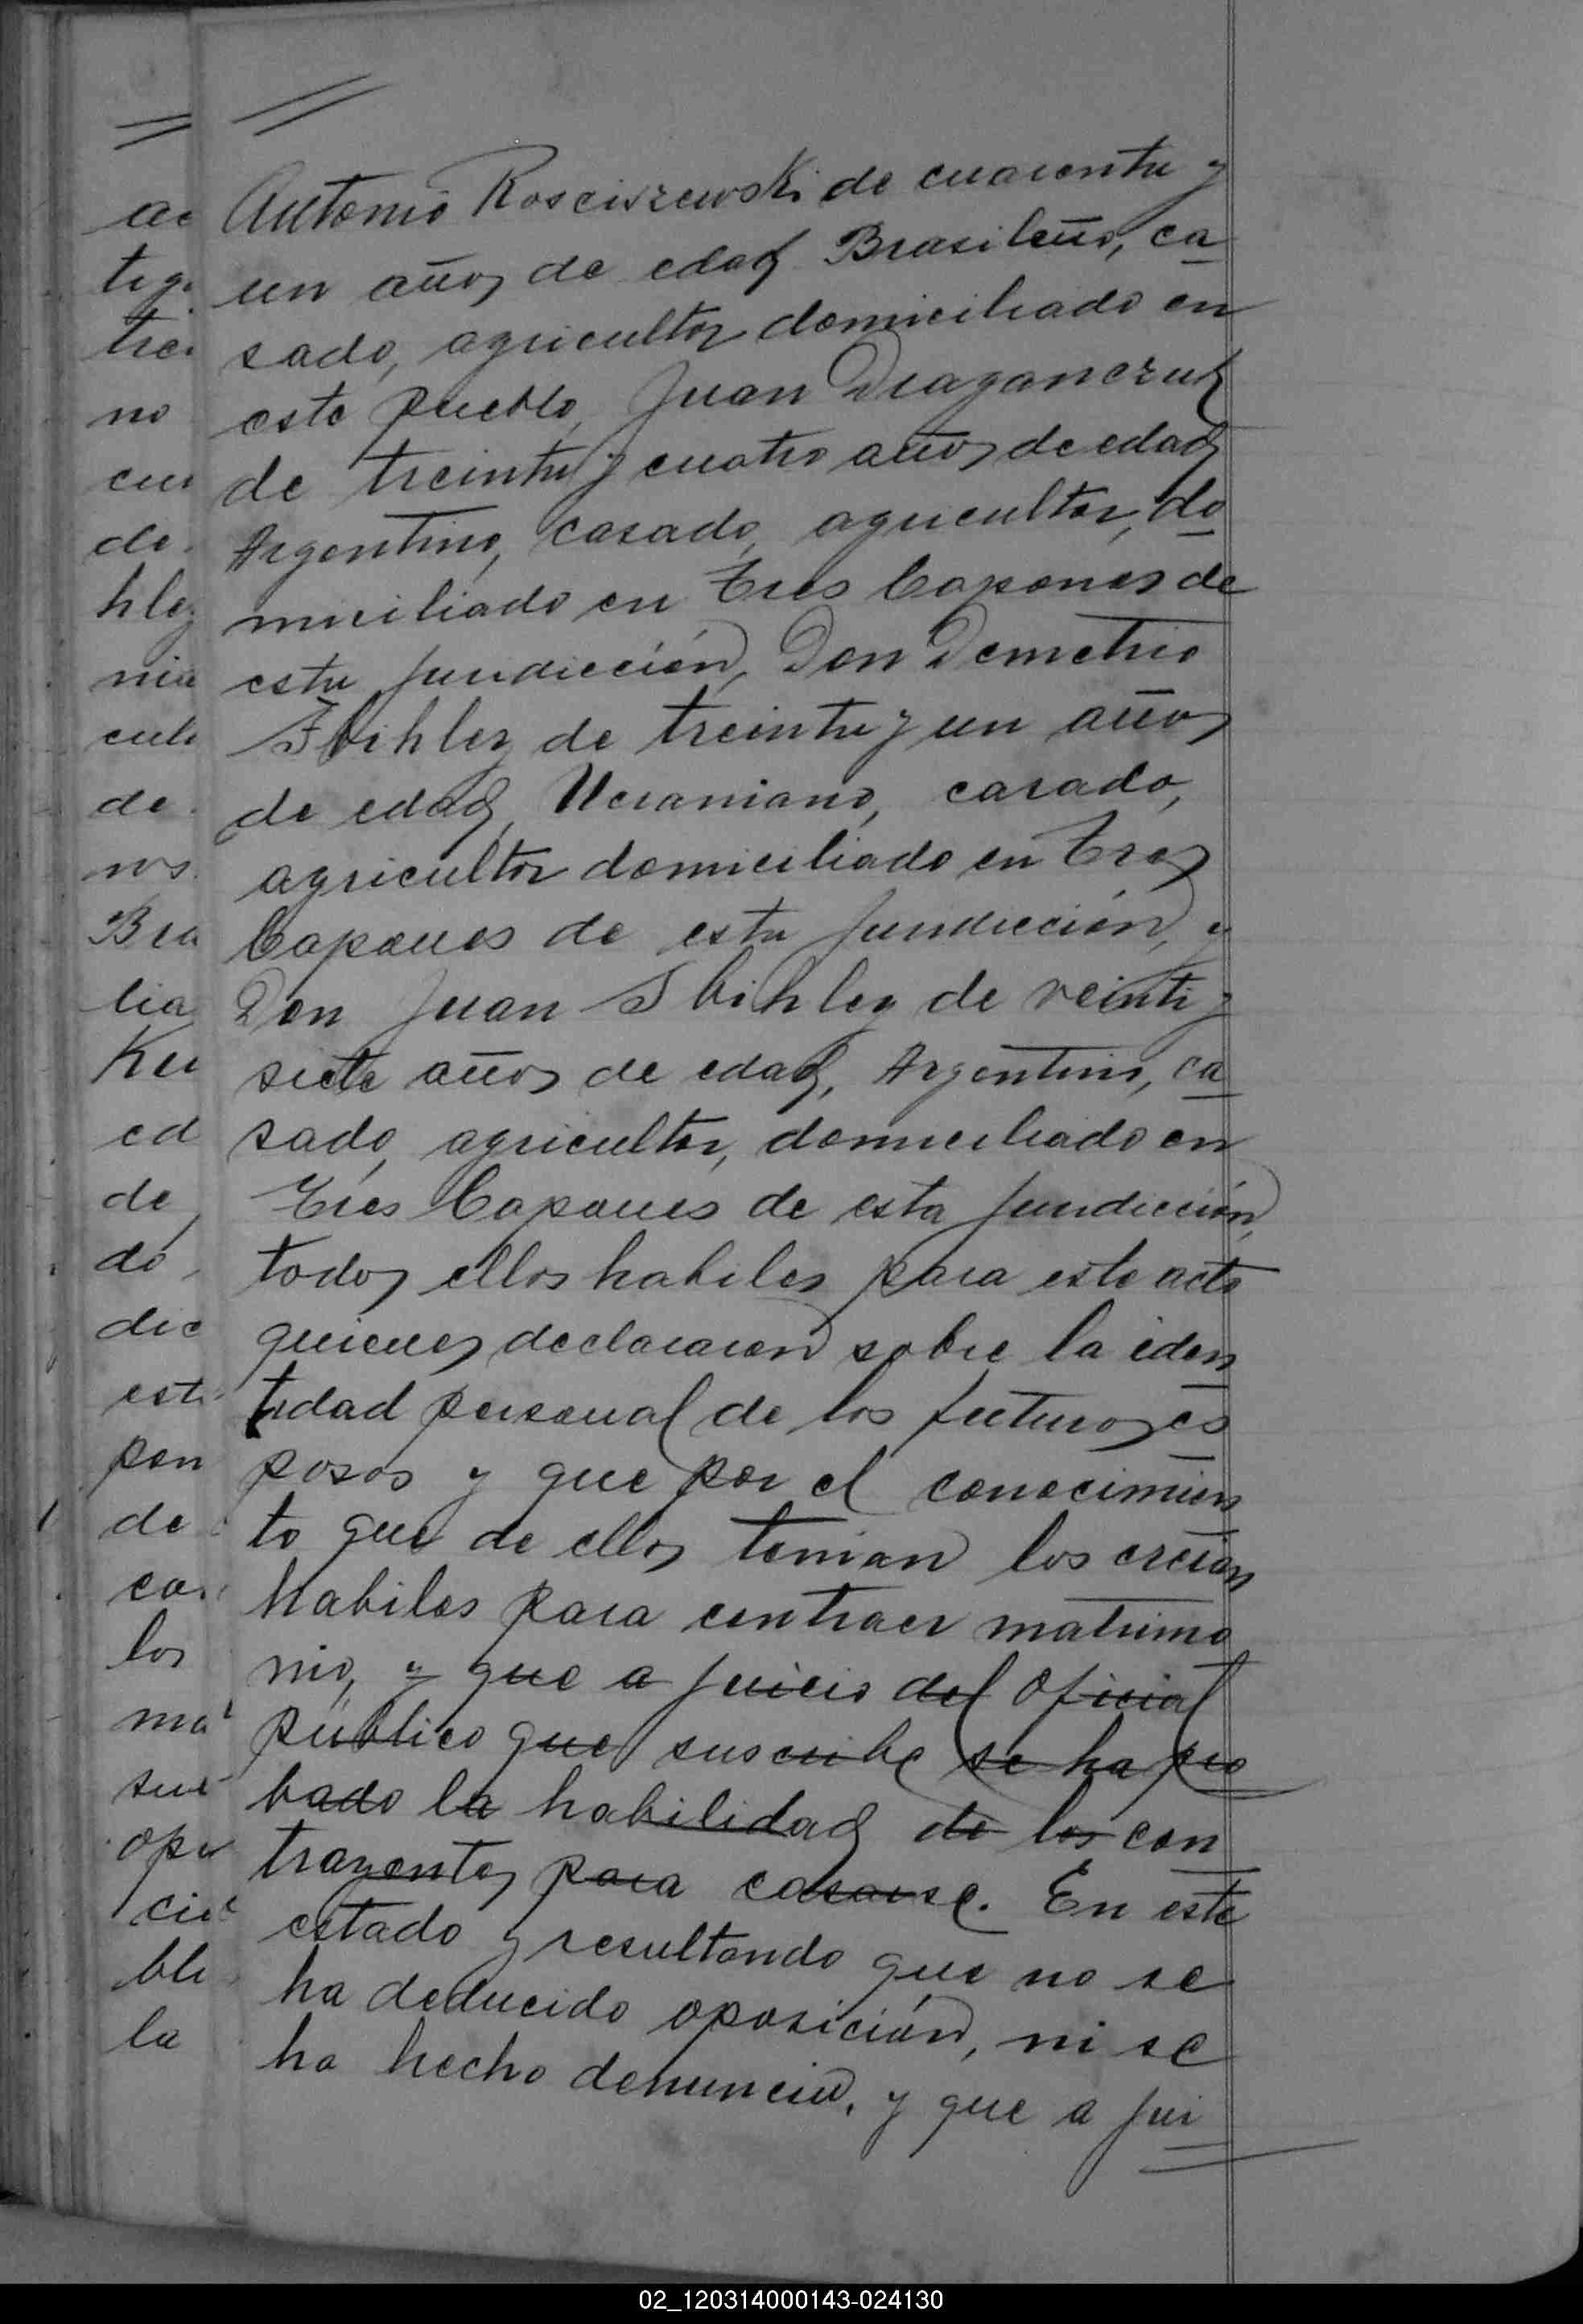 Antonio Rosciszewski de cuarenta y
un años de edad Brasileño, ca
sado, agricultor domiciliado en
este pueblo, Juan Draganczuk
de treinta y cuatro años de edad
Argentino, casado, agricultor, do
miciliado en Tres Capones de
esta juridicción, Don Demetrio
de treinta y un años
de edad, Ucraniano, casado,
agricultor domiciliado en Tres
Capones de esta juridicción, y
Don Juan de veinti y
siete años de edad, Argentino, ca
sado, agricultor, domiciliado en
Tres Capones de esta juridicción,
todos ellos habiles para este acto
quienes declararon sobre la iden
tidad personal de los futuros es
posos y que por el conocimien
to que de ellos tenian los creian
habiles para contraer matrimo
nio, y que a juicio del Oficial
público que suscribe se ha pro
bado la habilidad de los con
trayentes para casarse. En este
estado y resultando que no se
ha deducido oposición, ni se
ha hecho denuncia, y que a jui
ac
no
de
hley
cult
de
nos
Bra
lia
Ku
ed
de
do
dic
est
pon
de
los
ma
sus
opo
bli
la
02_120314000143-024130